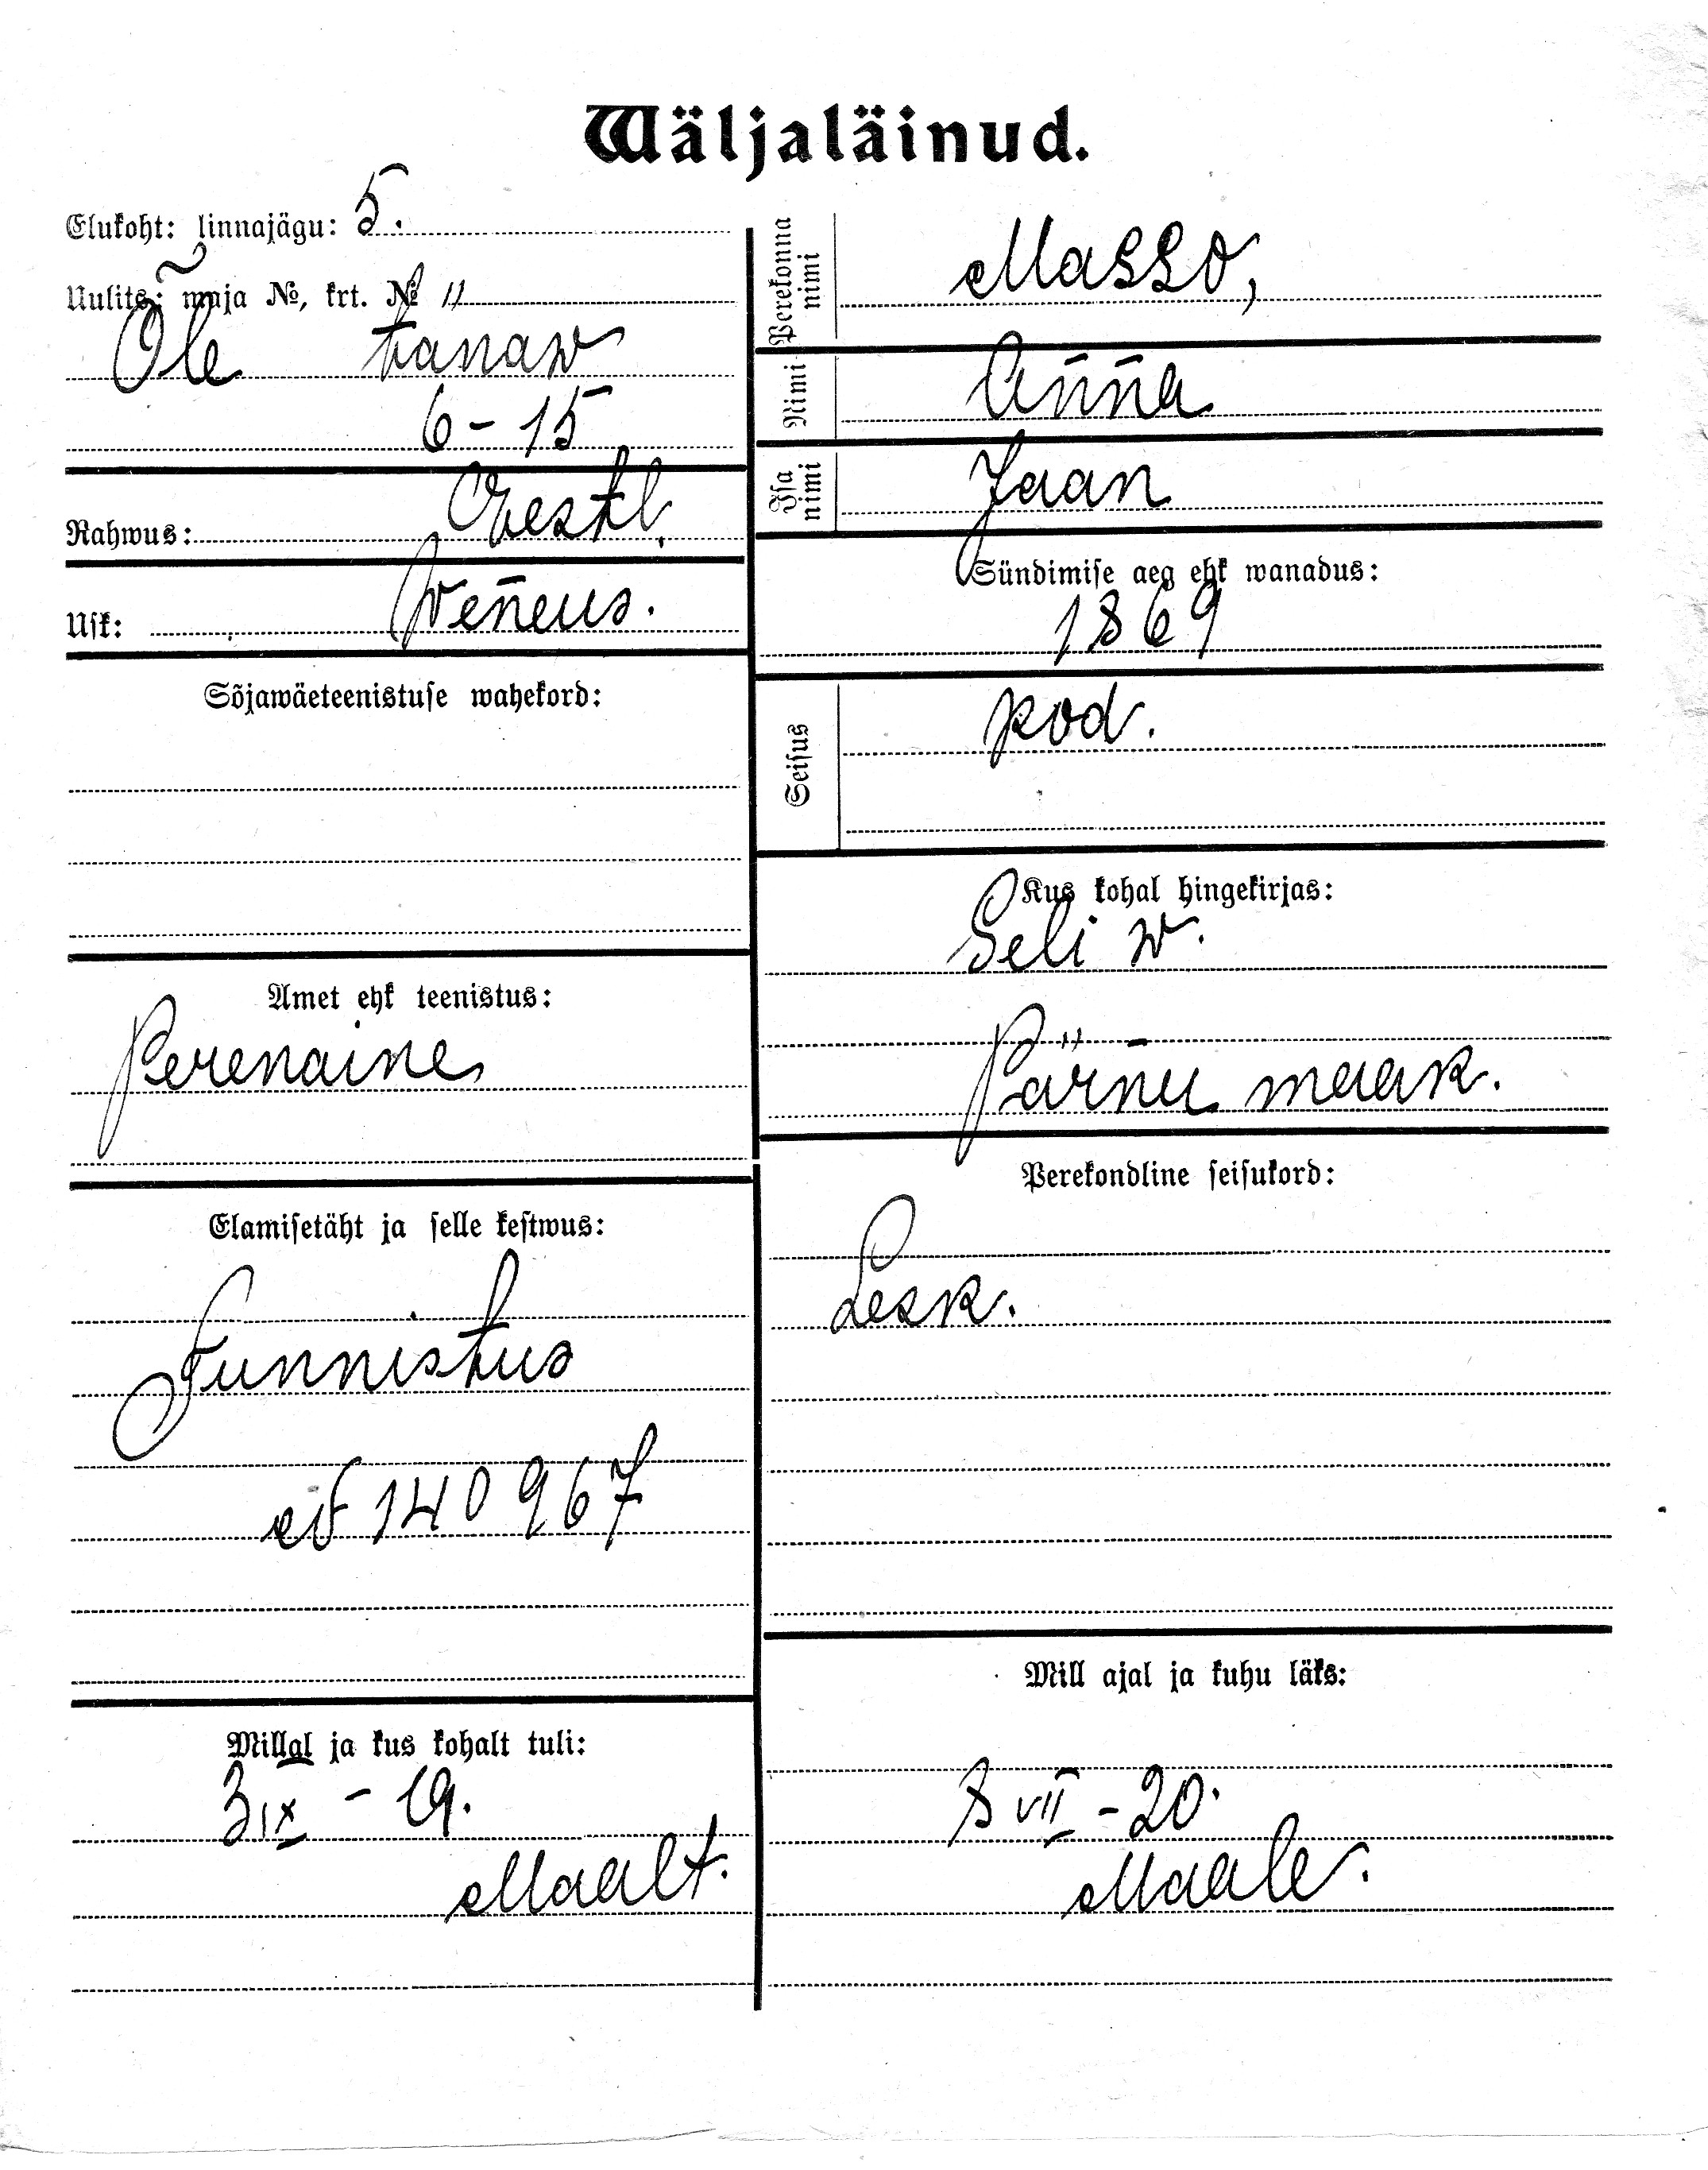 Wäljaläinud.
Elukoht: linnajägu: 5.
Uulits: maja №, krt. № 11
Õle tänaw
6 - 15
Rahwus: Eestl.
Usk: Weneus.
Sõjawäeteenistuse wahekord:
Amet ehk teenistus:
Perenaine
Elamisetäht ja selle kestwus:
Tunnistus
№ 140967
Millal ja kus kohalt tuli:
3 IX - 19.
Maalt.
Perekonna nimi Masso,
Nimi Anna
Isa nimi Jaan
Sündimise aeg ehk wanadus:
1869
Seisus pod.
Kus kohal hingekirjas:
Seli w.
Pärnu maak.
Perekondline seisukord:
Lesk.
Mill ajal ja kuhu läks:
8 VII - 20.
Maale.